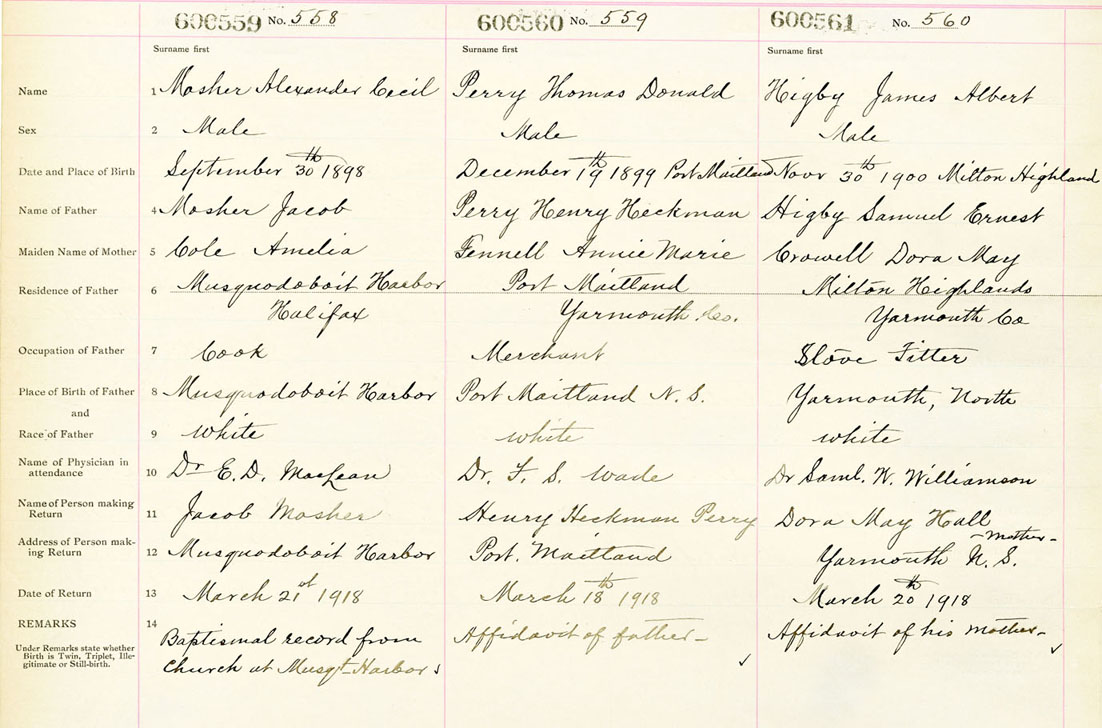 600559 No. 558 600560 No. 559 600561 No. 560
Surname first Surname first Surname first
Name 1 Mosher Alexander Cecil Perry Thomas Donald Higby James Albert
Sex 2 Male Male Male
Date and Place of Birth September 30th 1898 December 19th 1899 Port Maitland Novr 30th 1900 Milton Highland
Name of Father 4 Mosher Jacob Perry Henry Heckman Higby Samuel Ernest
Maiden Name of Mother 5 Cole Amelia Fennell Annie Marie Crowell Dora May
Residence of Father 6 Musquodoboit Harbor Port Maitland Milton Highlands
Halifax Yarmouth Co. Yarmouth Co
Occupation of Father 7 Cook Merchant Stove Fitter
Place of Birth of Father 8 Musquodoboit Harbor Port Maitland N. S. Yarmouth, North
and
Race of Father 9 white white white
Name of Physician in
attendance 10 Dr E. D. MacLean Dr. F. S. Wade Dr Saml. W. Williamson
Name of Person making
Return 11 Jacob Mosher Henry Heckman Perry Dora May Hall
-Mother-
Address of Person mak-
ing Return 12 Musquodoboit Harbor Port. Maitland Yarmouth N. S.
Date of Return 13 March 21st 1918 March 18th 1918 March 20th 1918
REMARKS 14
Baptismal record from Affidavit of father- Affidavit of his Mother-
Under Remarks state whether
Birth is Twin, Triplet, Ille-
gitimate or Still-birth.
Church at Musqt-Harbor